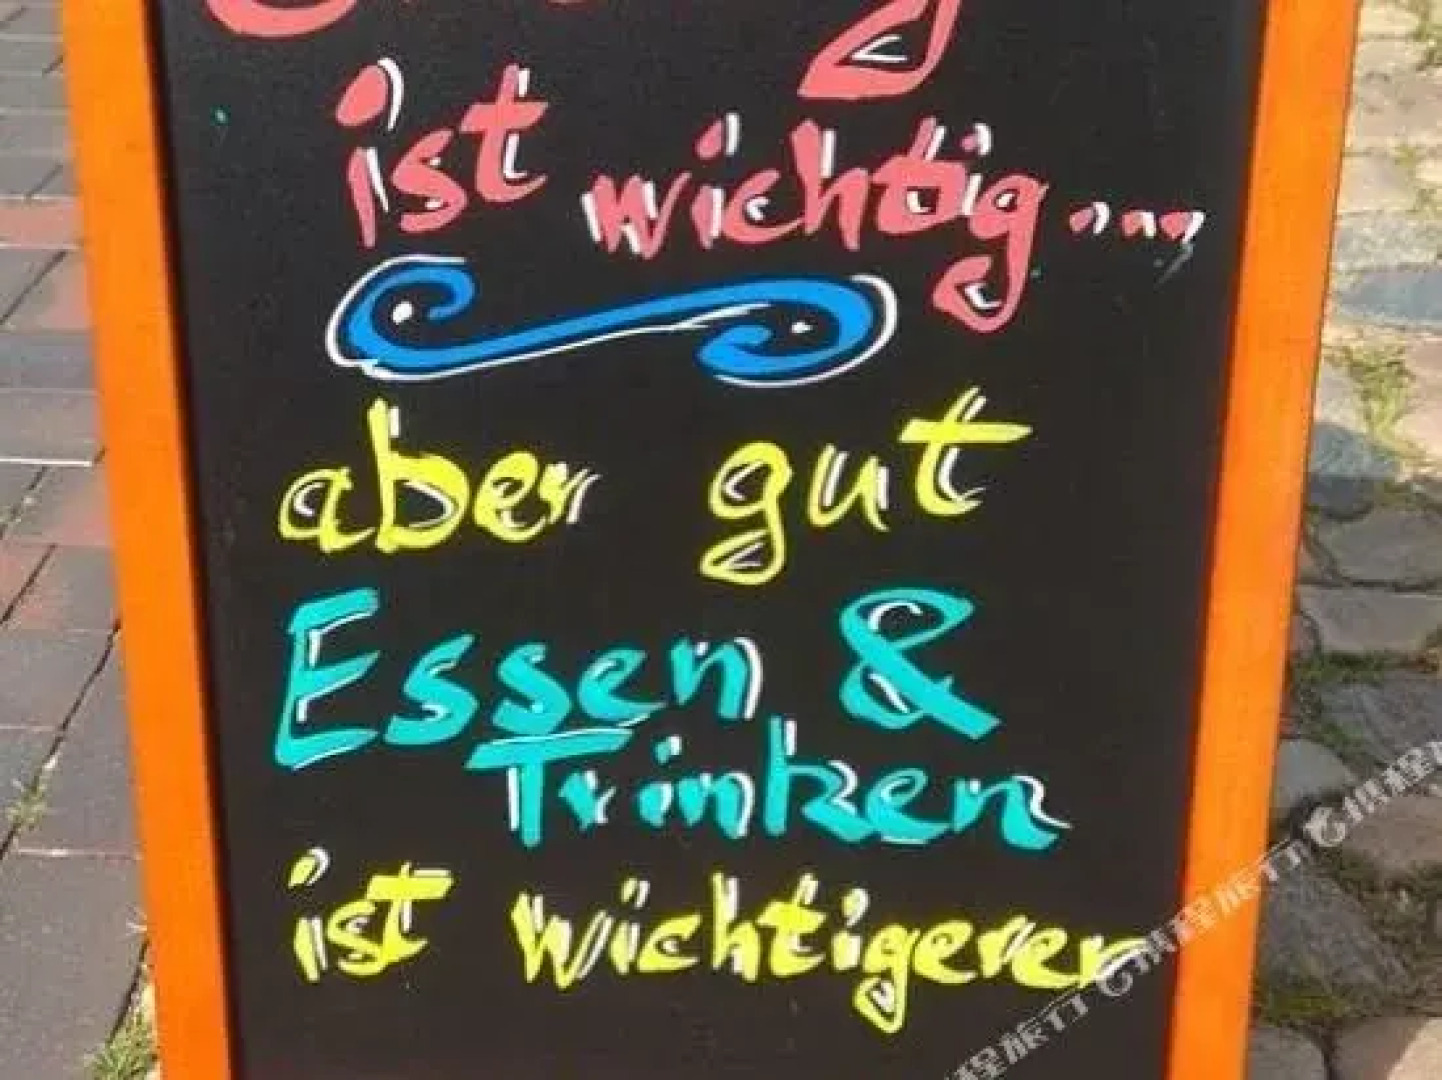 ist wichtig...
aber gut
Essen &
Trinken
ist wichtigerer